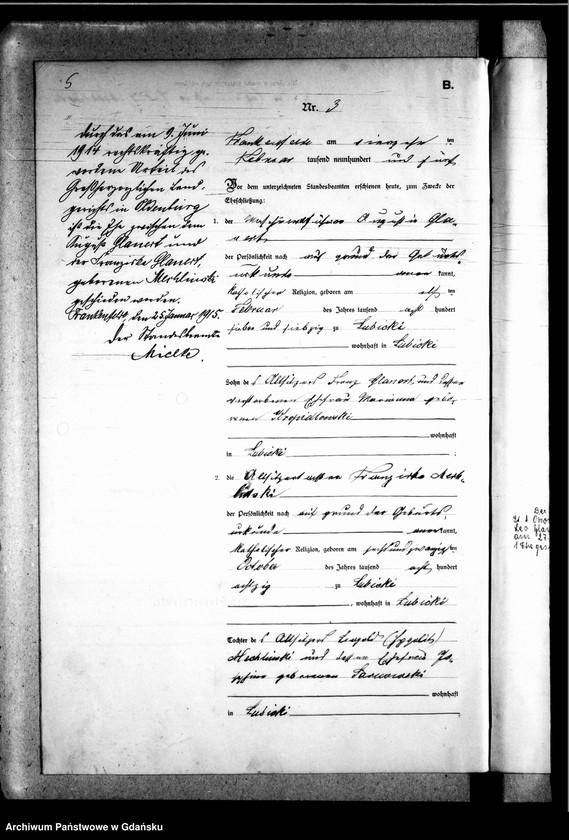 5
B.
Nr. 3
durch das am 9. Juni
1914 rechtskräftig ge-
wordene Urteil des
Großherzoglichen Land-
gerichts in Oldenburg
ist die Ehe zwischen dem
August Glanert und
der Franziska Glanert,
geborenen Mechlinski
geschieden worden.
Frankenfelde, den 25 Januar 1915.
Der Standesbeamte
Mielke.
am ten
Februar tausend neunhundert und fünf
Vor dem unterzeichneten Standesbeamten erschienen heute, zum Zwecke der
Eheschließung:
1. der August Gla-
nert
der Persönlichkeit nach auf Grund der Geburts-
urkunde kannt,
katholischer Religion, geboren am elften
Februar des Jahres tausend acht hundert
sieben und siebzig zu Lubicki
wohnhaft in Lubicki
Sohn des Altsitzers Franz Glanert, und dessen
verstorbenen Ehefrau Marianna gebo-
renen
wohnhaft
in Lubicki ;
2. die Franziska Mech-
linski
der Persönlichkeit nach auf Grund der Geburts-
urkunde kannt,
katholischer Religion, geboren am ten
October des Jahres tausend acht hundert
achtzig zu Lubicki
, wohnhaft in Lubicki
Tochter des Altsitzers Leopold
Mechlinski und dessen Ehefrau Jo-
sefine geborenen
wohnhaft
in Lubicki
am 27.
1 Ehe ges
Archiwum Państwowe w Gdańsku